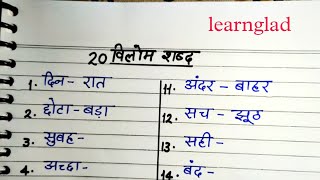 learnglad
20 विलोम शब्द
1. दिन - रात
2. छोटा - बड़ा
3. सुबह -
4. अच्छा -
11. अंदर - बाहर
12. सच - झूठ
13. सही -
14. बंद -